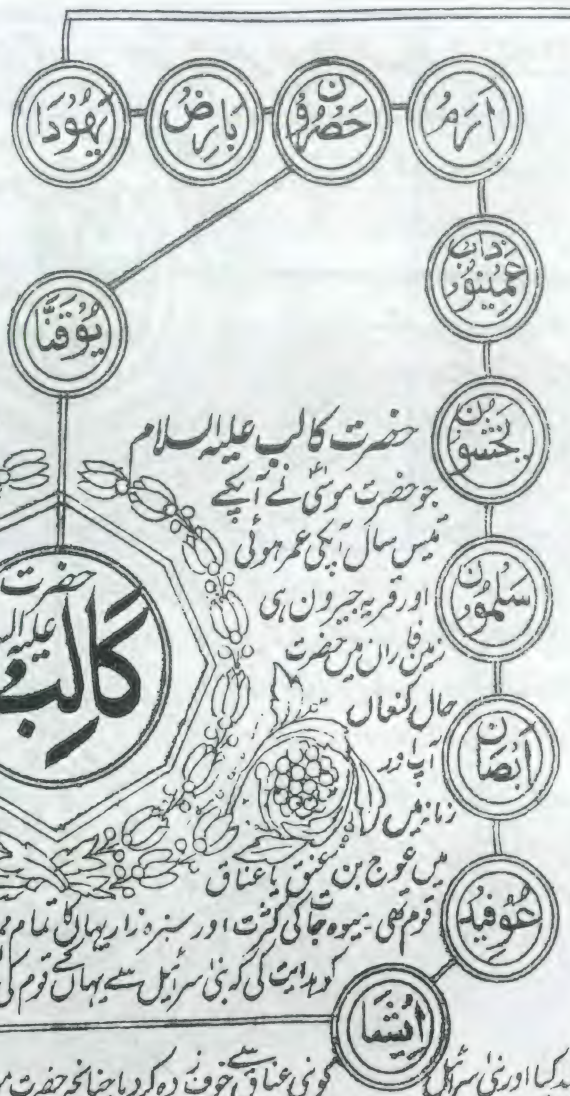 ارم
حصرون
بارض
یهودا
عمینوذاب
یوقنا
نخشون
حضرت کالب علیہ السلام
جو حضرت موسیٰ نے آپکے
تیس سال آپکی عمر ہوئی
اور قریہ جیرون ہی
سلمون
زمین فاران میں حضرت
حضرت
کالب
حال کنعاں
آپ اور
ابصان
زمانہ میں
میں عوج بن عنق یا عناق
عوفید
قوم تھی۔ میوہ جات کی کثرت اور سبزہ زار یہاں کا تمام
کو ہدایت کی کہ بنی اسرائیل سے یہاں کے قوم کی
ایشا
کیا اور بنی اسرائیل کو بنی عناق سے خوف زدہ کر دیا چنانچہ حضرت